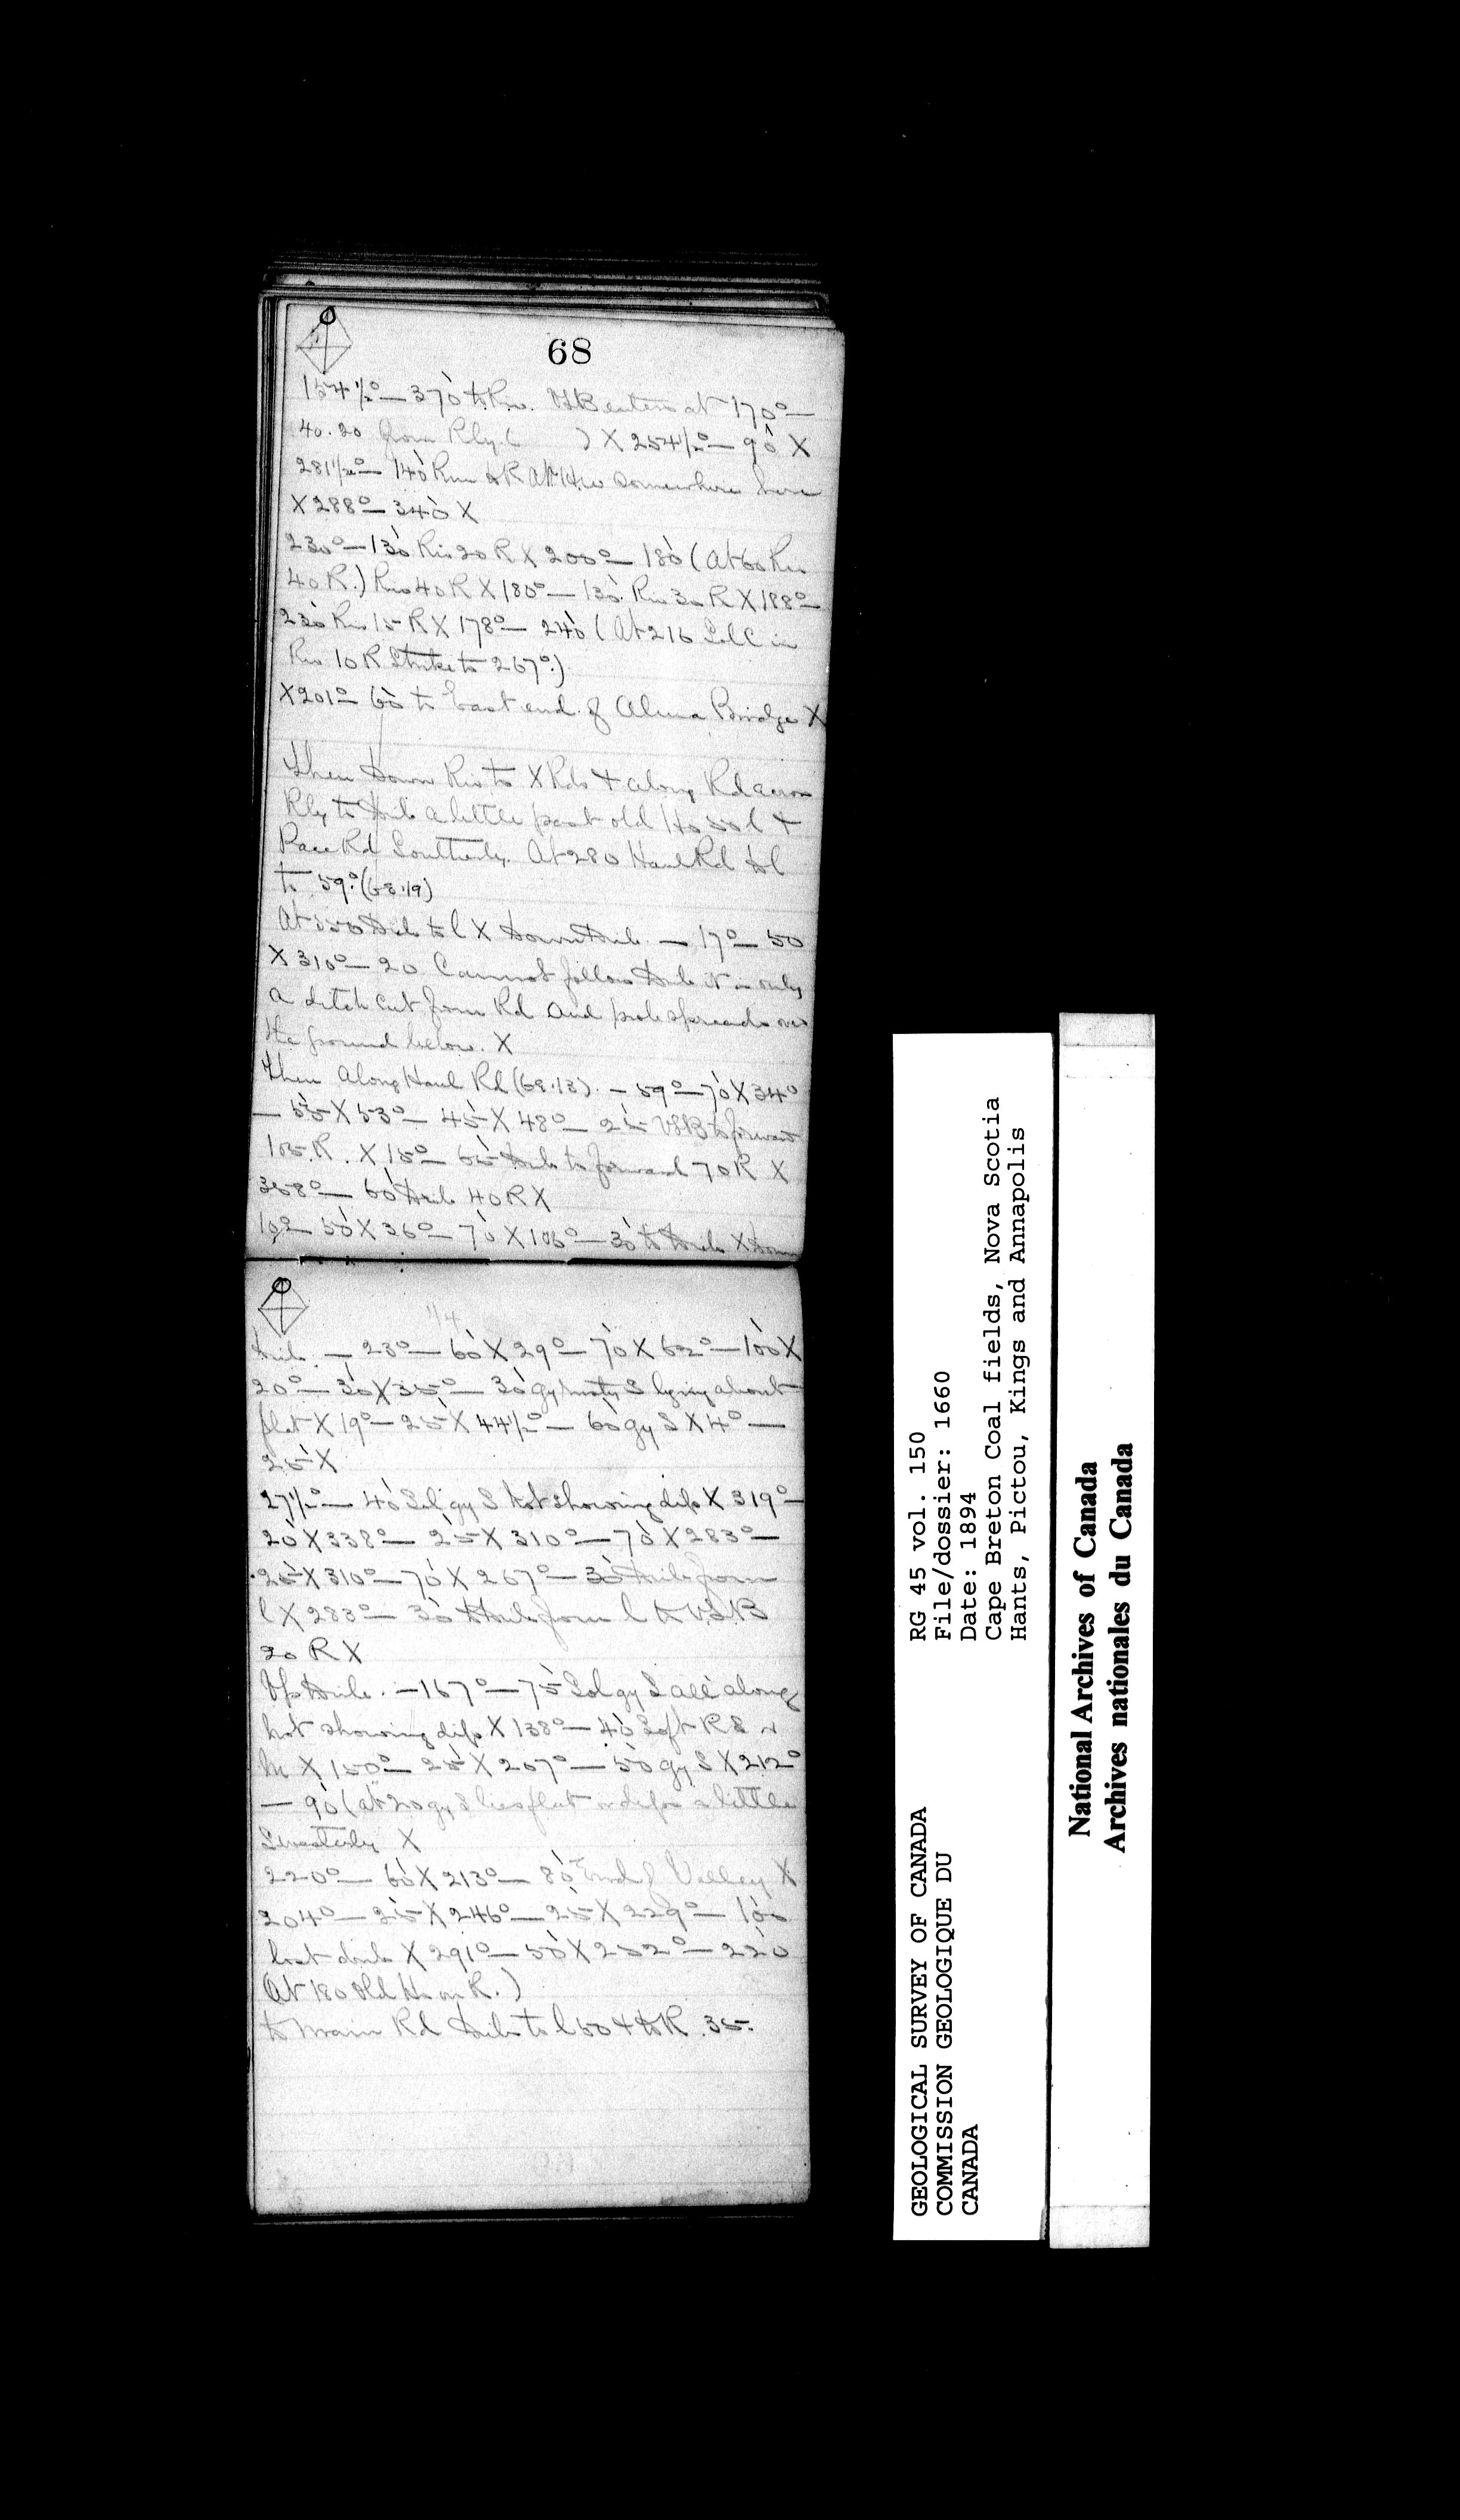 68
154½° — 370 to Riv. VSB enters at 170° —
40.20 from Rly. ( ) X 254½° — 90 X
281½° — 140 Riv to R at Ho somewhere here
X 288° — 340 X
230° — 130 Riv 20 R X 200° — 180 (At 60 Riv
40 R.) Riv 40 R X 180° — 130. Riv 30 R X 188° —
230 Riv 15 R X 178° — 240 (At 216 in
Riv 10 R Strike to 267°.)
X 201° — 60 to East end of Alma Bridge X
Then Down Riv to X Rds + along Rd across
Rly to a little past old Ho 50 l +
Pace Rd Southerly. At 280 Haul Rd to l
to 59°. (68.19)
At to l X Down — 17° — 50
X 310° — 20 Cannot follow it is only
a ditch cut from Rd and prob spreads over
the ground below. X
Then along Haul Rd (68.13). — 59° — 70 X 34°
— 55 X 53° — 45 X 48° — 25 VSB to forward
105 R. X 15° — 65 to forward 70 R X
358° — 60 40 R X
10° — 50 X 36° — 70 X 106° — 30 to X Down
— 23° — 60 X 29° — 70 X 62° — 100 X
20° — 30 X 35° — 30 gy rusty S lying about
flat X 19° — 25 X 44½° — 60 gy S X 4° —
25 X
27½° — 40 Sol gy S not showing dip X 319° —
20 X 338° — 25 X 310° — 70 X 283° —
25 X 310° — 70 X 267° — 30 from
l X 283° — 30 to from l to VSB
20 R X
Up — 167° — 75 Sol gy S all along
not showing dip X 138° — 40 Soft R S +
M X 150° — 25 X 207° — 50 gy S X 212°
— 90 (at 20 gy S lies flat or dips a little
X
220° — 60 X 213° — 80 End of Valley X
204° — 25 X 246° — 25 X 229° — 100
lost X 291° — 50 X 252° — 220
(At 180 Old Ho on R.)
to Main Rd to l 50 + to R. 35.
GEOLOGICAL SURVEY OF CANADA
COMMISSION GEOLOGIQUE DU
CANADA
RG 45 vol. 150
File/dossier: 1660
Date: 1894
Cape Breton Coal fields, Nova Scotia
Hants, Pictou, Kings and Annapolis
National Archives of Canada
Archives nationales du Canada